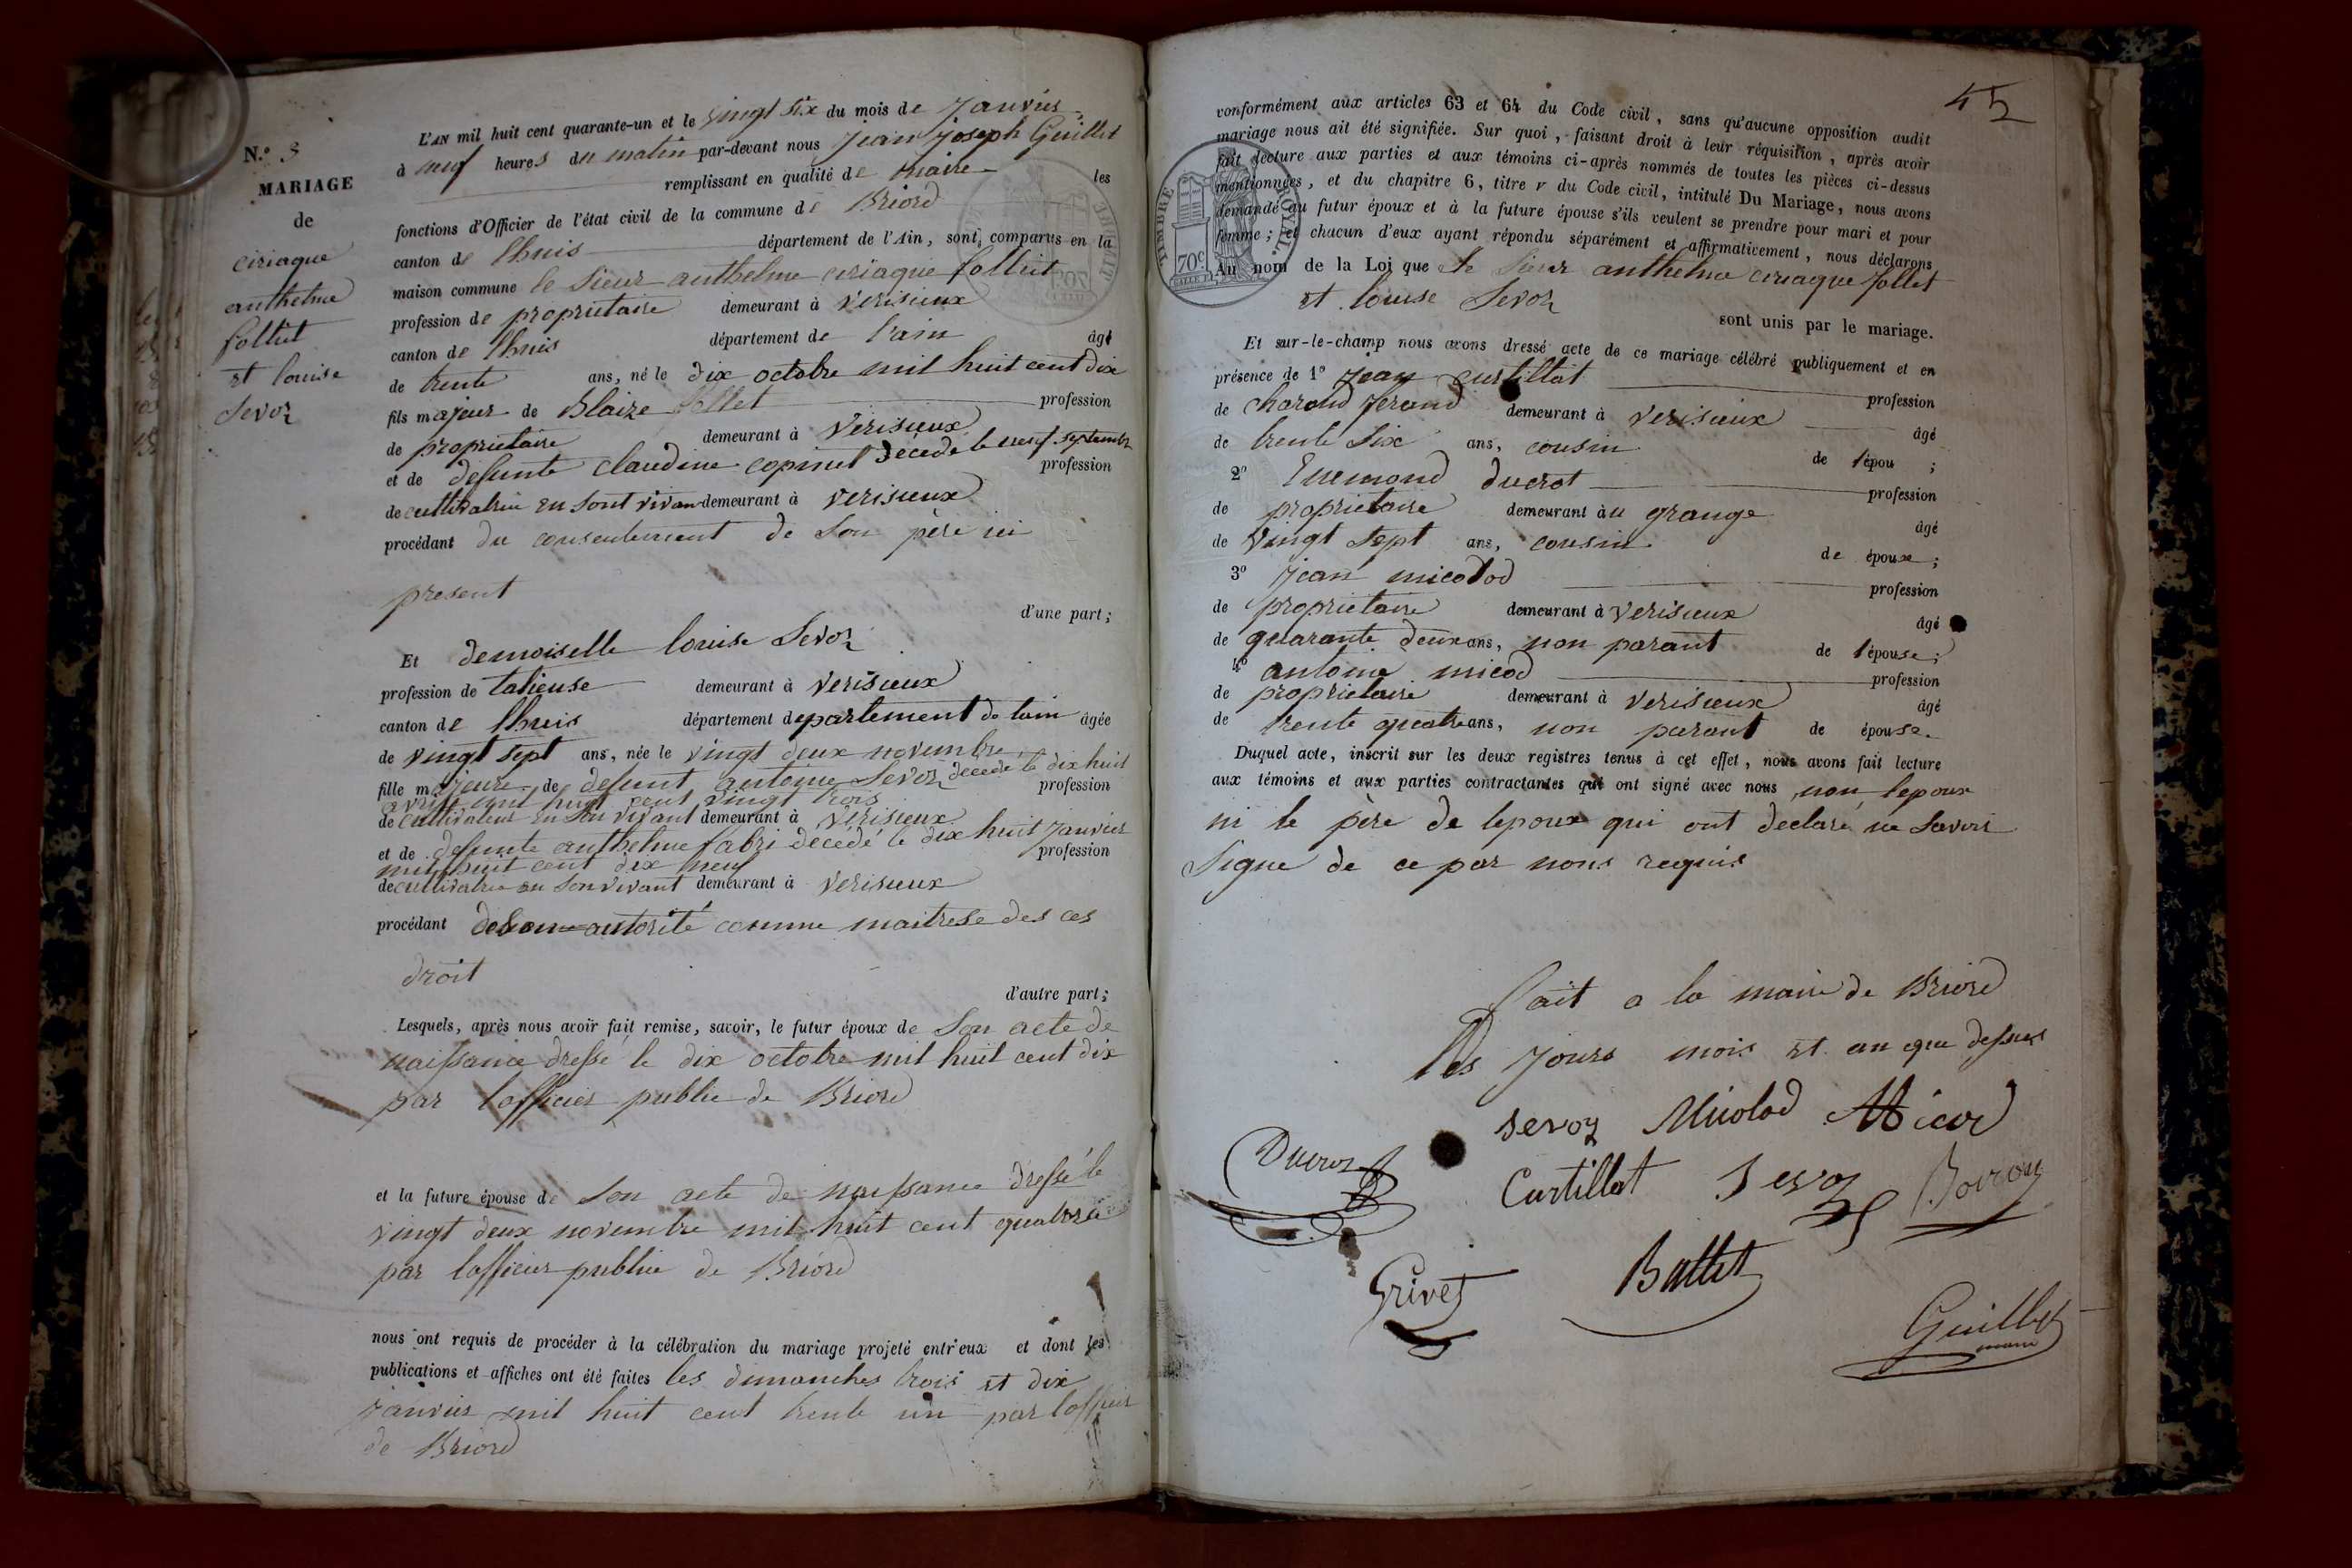 N.º 3
MARIAGE
de
ciriaque
anthelme
follut
et louise
Sevoz
L'AN mil huit cent quarante-un et le vingt six du mois de Janvier
à neuf heures du matin par-devant nous Jean joseph Guillet
remplissant en qualité de maire les
fonctions d'Officier de l'état civil de la commune de Briord
canton de lhuis département de l'Ain, sont comparus en la
maison commune le Sieur anthelme ciriaque follut
profession de proprietaire demeurant à Verisieux
canton de lhuis département de l'ain âgé
de trente ans, né le dix octobre mil huit cent dix
fils majeur de Blaize follet profession
de proprietaire demeurant à Verisieux
et de defunte claudine copinet décédé le neuf septembre profession
de cultivatrice en sont vivan demeurant à verisieux
procédant du consentement de Son père ici
present
d'une part;
Et demoiselle louise Sevoz
profession de talieuse demeurant à Verisieux
canton de lhuis département département de lain âgée
de vingt sept ans, née le vingt deux novembre
fille majeure de defunt antoine Sevoz décédé le dix huit profession
avrile mil huit cent vingt trois
de cultivateur en Son vivant demeurant à Verisieux
et de defunte anthelme fabri décédé le dix huit Janvier profession
mil huit cent dix neuf
de cultivatrice en Son vivant demeurant à Verisieux
procédant de Son autorité comme maitrese des ces
droit
d'autre part;
Lesquels, après nous avoir fait remise, savoir, le futur époux de Son acte de
naissance dressé le dix octobre mil huit cent dix
par lofficier public de Briord
et la future épouse de Son acte de naissance dressé le
vingt deux novembre mil huit cent quatorze
par lofficier public de Briord
nous ont requis de procéder à la célébration du mariage projeté entr'eux et dont les
publications et affiches ont été faites les dimanches trois et dix
janvier mil huit cent trente un par lofficier
de Briord
45
conformément aux articles 63 et 64 du Code civil, sans qu'aucune opposition audit
mariage nous ait été signifiée. Sur quoi, faisant droit à leur réquisition, après avoir
fait lecture aux parties et aux témoins ci-après nommés de toutes les pièces ci-dessus
mentionnées, et du chapitre 6, titre v du Code civil, intitulé Du Mariage, nous avons
demandé au futur époux et à la future épouse s'ils veulent se prendre pour mari et pour
femme; et chacun d'eux ayant répondu séparément et affirmativement, nous déclarons
TIMBRE ROYAL
70c
Au nom de la Loi que Le Sieur anthelme ciriaque follet
et louise Sevoz
sont unis par le mariage.
Et sur-le-champ nous avons dressé acte de ce mariage célébré publiquement et en
présence de 1º Jean curtillat profession
de demeurant à Verisieux âgé
de trente Six ans, cousin de l'épou ;
2º Enemond ducrot profession
de proprietaire demeurant àu grange âgé
de Vingt Sept ans, cousin de épouse;
3º Jean micolod profession
de proprietaire demeurant à Verisieux âgé
de quarante deux ans, non parant de l'épouse;
4º antoine micod profession
de proprietaire demeurant à Verisieux âgé
de trente quatre ans, non parant de épouse.
Duquel acte, inscrit sur les deux registres tenus à cet effet, nous avons fait lecture
aux témoins et aux parties contractantes qui ont signé avec nous non lepoux
ni le père de lepoux qui ont declaré ne Savoir
Signe de ce par nous requis
fait a la mairie de Briord
les jours mois et an que dessus
sevoz Micolod Micod
Ducroz Curtillat Sevoz
Grivet Ballet
Guillet
maire